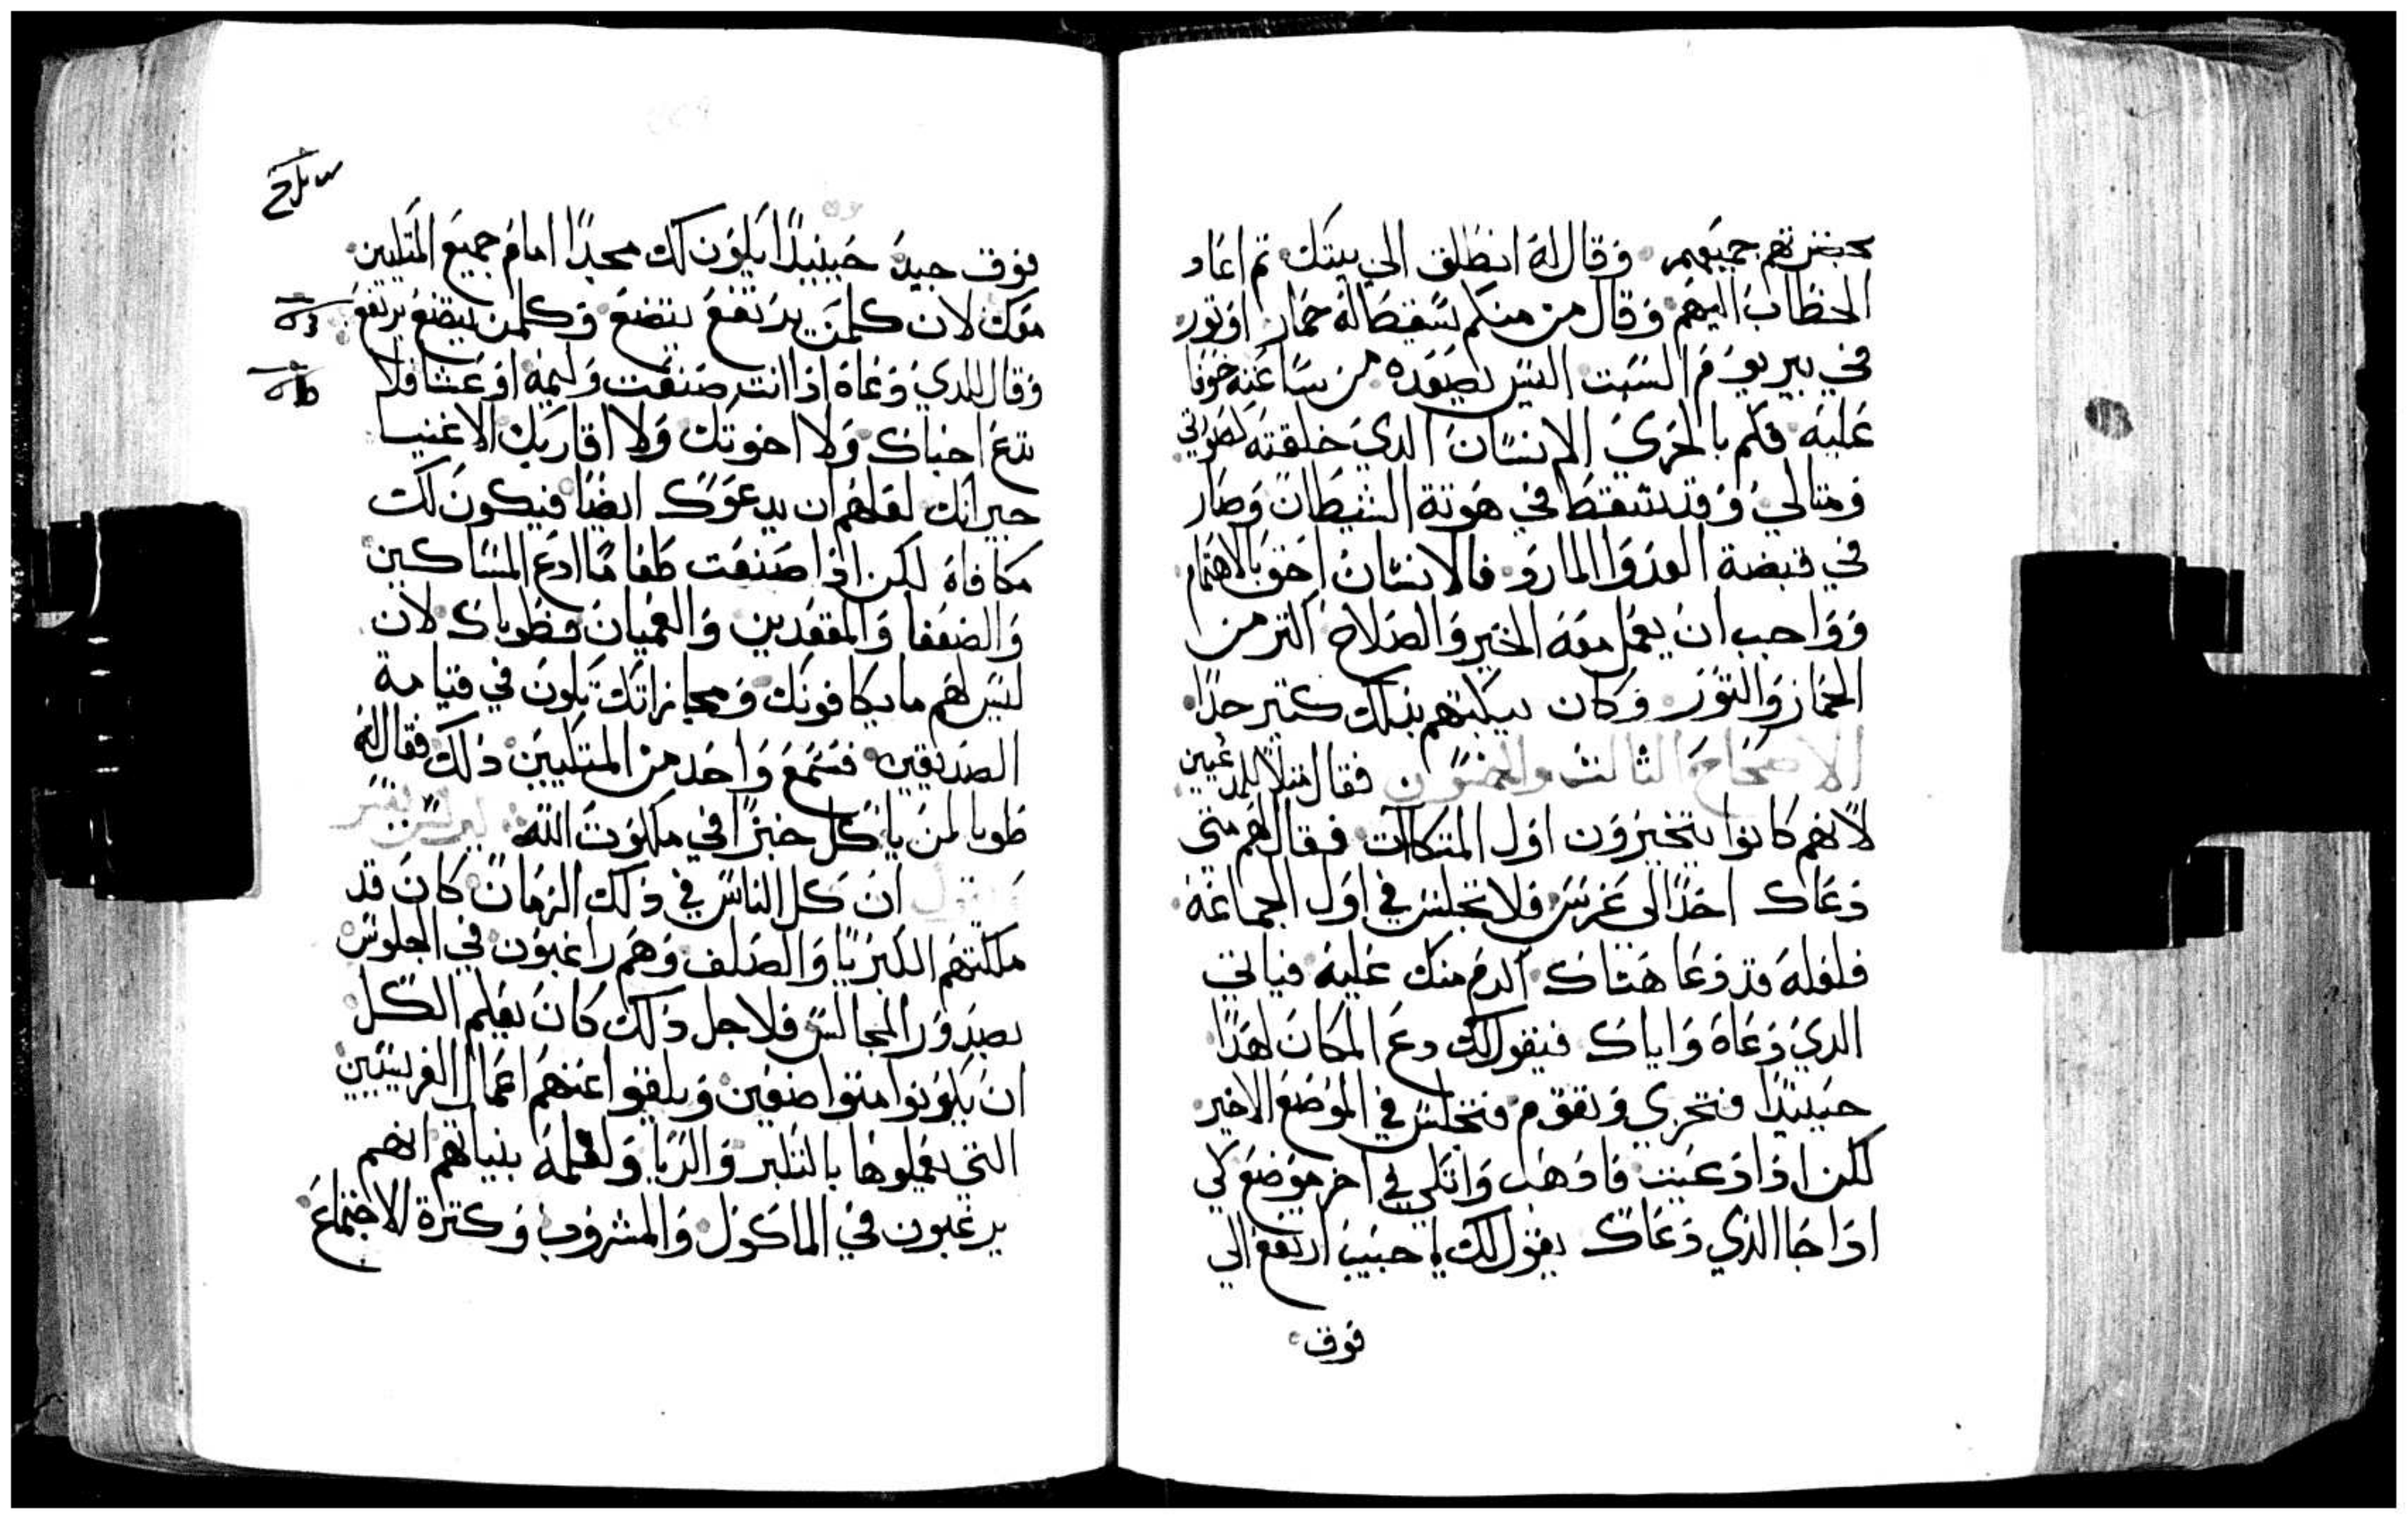 بحضرتهم جميعهم وقال له انطلق الي بيتك تم اعاد
الخطاب اليهم وقال من منكم يسقط له حمار او تور
في بير يوم السبت اليس يصعده من ساعته خوفا
عليه فكم بالحري الانسان الدي خلقته لصورتي
ومتالي وقد سقط في هوتة الشيطان وصار
في قبضة العدو المارد فالانسان احق بالاهتمام
وواجب ان يعمل معه الخير والصلاح اكتر من
الحمار والتور وكان يبكتهم بدلك كتير جدا
الاصحاح الثالث والخمسون فقال مثلا للمدعيين
لانهم كانوا يتخيرون اول المتكاات فقال لهم متي
دعاك احدا الى عرس فلا تجلس في اول الجماعة
فلعله قد دعا هناك اكرم منك عليه فياتي
الدي دعاه واياك فيقول لك دع المكان لهدا
حينيدا فتخزي وتقوم فتجلس في الموضع الاخير
لكن ادا دعيت فادهب واتكي في اخر موضع لكي
ادا جا الذي دعاك يقول لك يا حبيب ارتفع الي
فوق
فوق حينيدا يكون لك مجدا امام جميع المتكيين
معك لان كلمن يرتفع يتضع وكلمن يتضع يرتفع
وقال للدي دعاه ادا انت صنعت وليمة او عشا فلا
تدع احباك ولا اخوتك ولا اقاربك الاغنيا
جيرانك لعلهم ان يدعوك ايضا فيكون لك
مكافاة لكن اذا صنعت طعاما ادع المساكين
والضعفا والمقعدين والعميان فطوباك لان
ليس لهم ما يكافونك ومجازاتك تكون في قيامة
الصديقين فسمع واحد من المتكيين دلك فقال له
طوبا لمن ياكل خبزا في ملكوت الله
ان كل الناس في ذلك الزمان كان قد
ملكتهم الكبريا والصلف وهم راغبون في الجلوس
بصدور المجالس فلاجل دلك كان يعلم الكل
ان يكونوا متواضعين ويلقوا عنهم اعمال الفريسيين
التي يعملوها بالتكبر والريا ولعلمه بنياتهم انهم
يرغبون في الماكول والمشروب وكترة الاجتماع